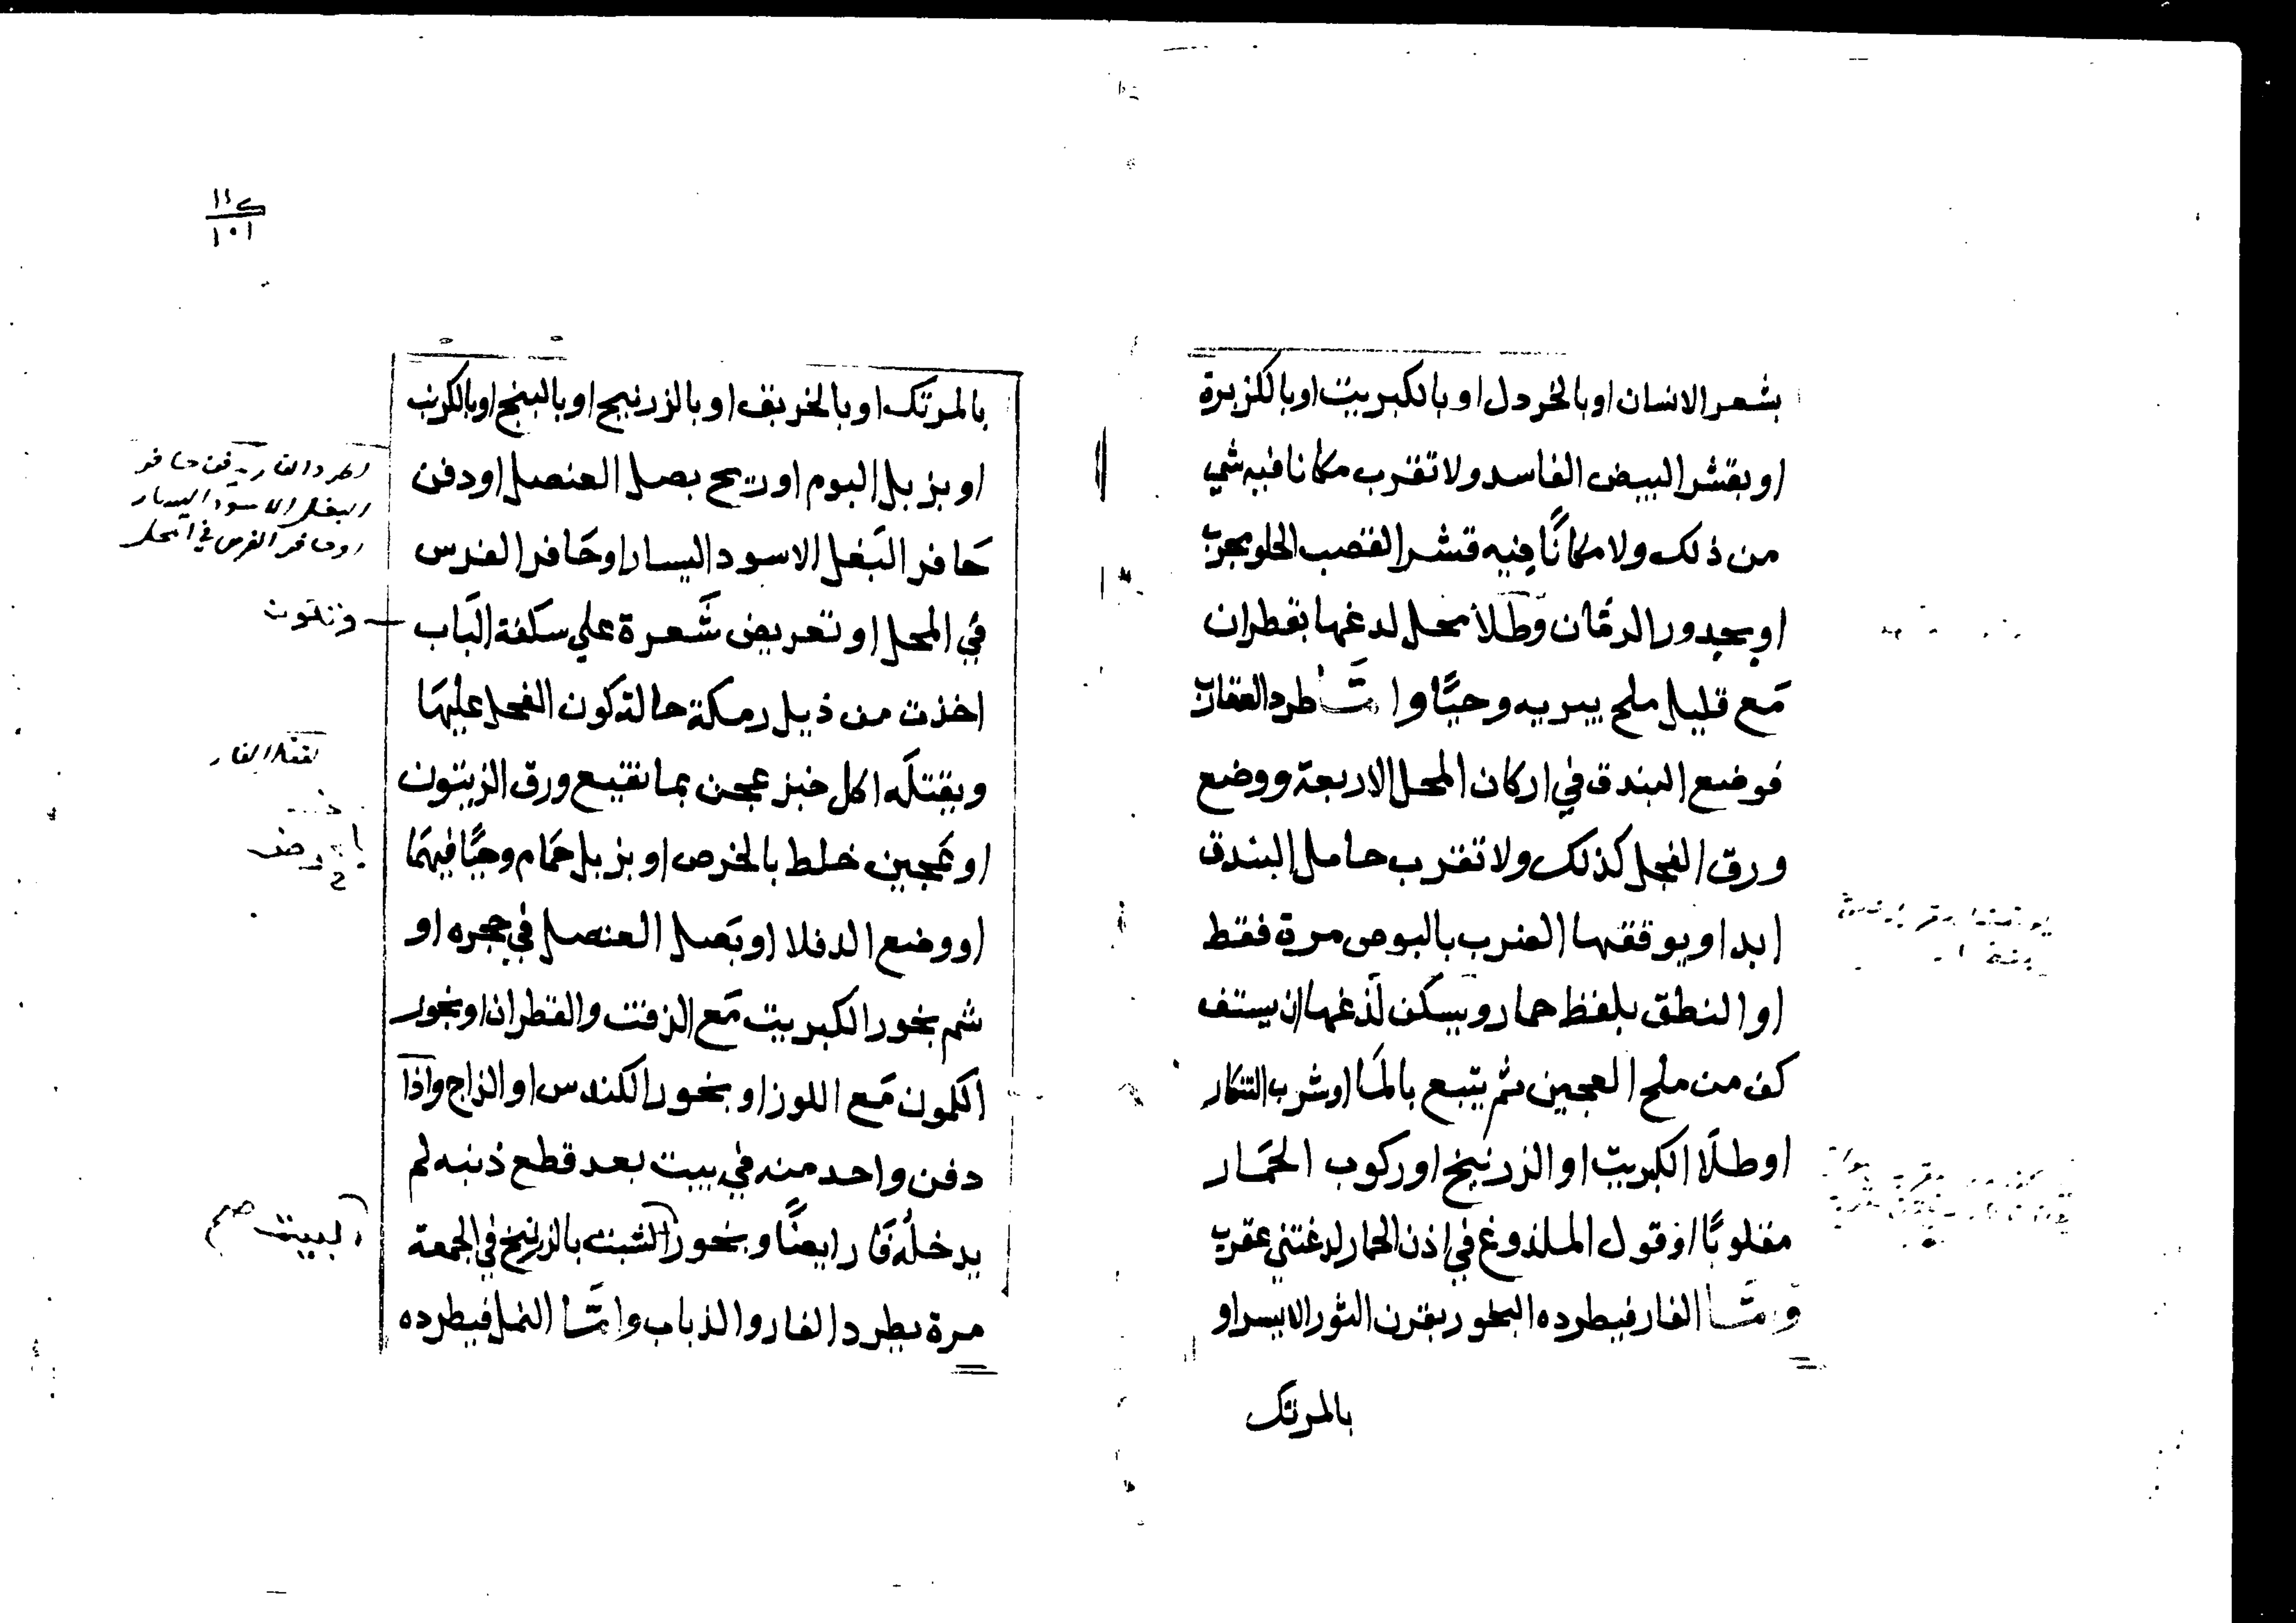 بشعر الانسان او بالخردل او بالكبريت او بالكزبرة
او بقشر البيض الفاسد ولا تقرب مكانا فيه شي
من ذلك ولا مكانًا فيه قشر القصب الحلو مجرب
او بجدور الرمّان وطلا محل لدغها بقطران
مَع قليل ملح يبريه وحيًّا وامّا طرد العقارب
فوضع البندق في اركان المحل الاربعة ووضع
ورق الفجل كذلك ولا تقرب حامل البندق
ابدا ويوقفها الضرب بالبوص مرة فقط
او النطق بلفظ حمار ويسكن لَدغها ان يستف
كف من ملح العجين ثم يتبع بالمَا او شرب التنكار
او طلَا الكبريت او الزرنيخ او ركوب الحمَار
مقلوبًا او قول الملدوغ في اذن الحمار لدغتني عقرب
وامّا الفار فيطرده البخور بقرن الثور الايسر او
بالمرتك
١١٢
١٠١
بالمرتَك او بالخربق او بالزرنيخ او بالبنج او بالكرنب
او بزبل البوم او ريح بصل العنصل او دفن
حَافر البَغل الاسود اليسار او حَافر الفرس
في المحل او تعريض شَعرة علي سكفة البَاب
اخذت من ذيل رمكة حالة كون الفحل عليهَا
ويقتلَه اكل خبز عجن بما نقيع ورق الزيتون
او عَجين خلط بالخرص او بزبل حمَام وحيًّا فيهمَا
او وضع الدفلا او بَصل العنصل في جحره او
شم بخور الكبريت مَع الزفت والقطران او بخور
الكمون مَع اللوز او بخور الكندس او الزاج واذا
دفن واحد منه في بيت بعد قطع ذنبه لم
يدخلُه فَار ايضًا وبخور الشبت بالزرنيخ في الجمعة
مرة يطرد الفار والذباب وامّا النمل فيطرده
لطرد الفار يدفن حافر
البغل الاسود اليسار
او حافر الفرس في المحل
لقتل الفار
البيت صح